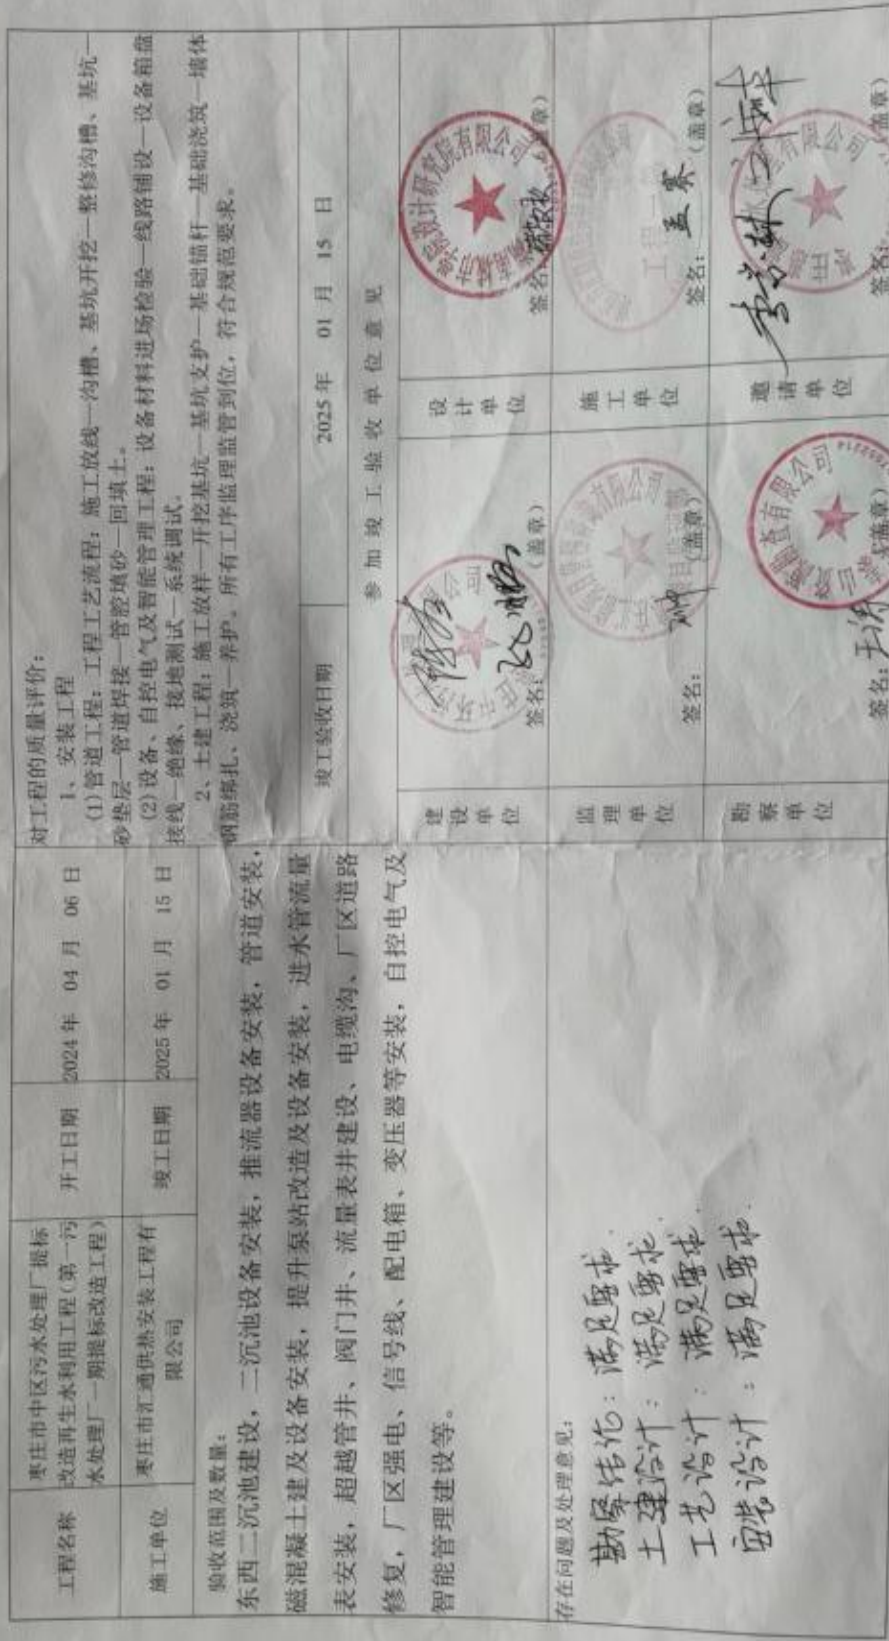 工程名称
枣庄市中区污水处理厂提标
改造再生水利用工程(第一污
水处理厂一期提标改造工程)
开工日期
2024 年 04 月 06 日
施工单位
枣庄市汇通供热安装工程有
限公司
竣工日期
2025 年 01 月 15 日
验收范围及数量:
东西二沉池建设,二沉池设备安装,推流器设备安装,管道安装,
磁混凝土建及设备安装,提升泵站改造及设备安装,进水管流量
表安装,超越管井、阀门井、流量表井建设、电缆沟、厂区道路
修复,厂区强电、信号线、配电箱、变压器等安装,自控电气及
智能管理建设等。
存在问题及处理意见:
勘察结论:满足要求.
土建设计:满足要求.
工艺设计:满足要求.
安装设计:满足要求.
对工程的质量评价:
1、安装工程
(1)管道工程:工程工艺流程:施工放线—沟槽、基坑开挖—整修沟槽、基坑—
砂垫层—管道焊接—管腔填砂—回填土。
(2)设备、自控电气及智能管理工程:设备材料进场检验—线路铺设—设备箱盘
接线—绝缘、接地测试—系统调试。
2、土建工程:施工放样—开挖基坑—基坑支护—基础锚杆—基础浇筑—墙体
钢筋绑扎、浇筑—养护。所有工序监理监管到位,符合规范要求。
竣工验收日期
2025 年 01 月 15 日
参加竣工验收单位意见
建设单位
签名:
(盖章)
设计单位
设计研究院有限公司
签名:
(盖章)
监理单位
有限公司
签名:
(盖章)
施工单位
签名: 孟赛
(盖章)
勘察单位
勘查有限公司
签名: 王涛
(盖章)
邀请单位
有限公司
签名:
(盖章)